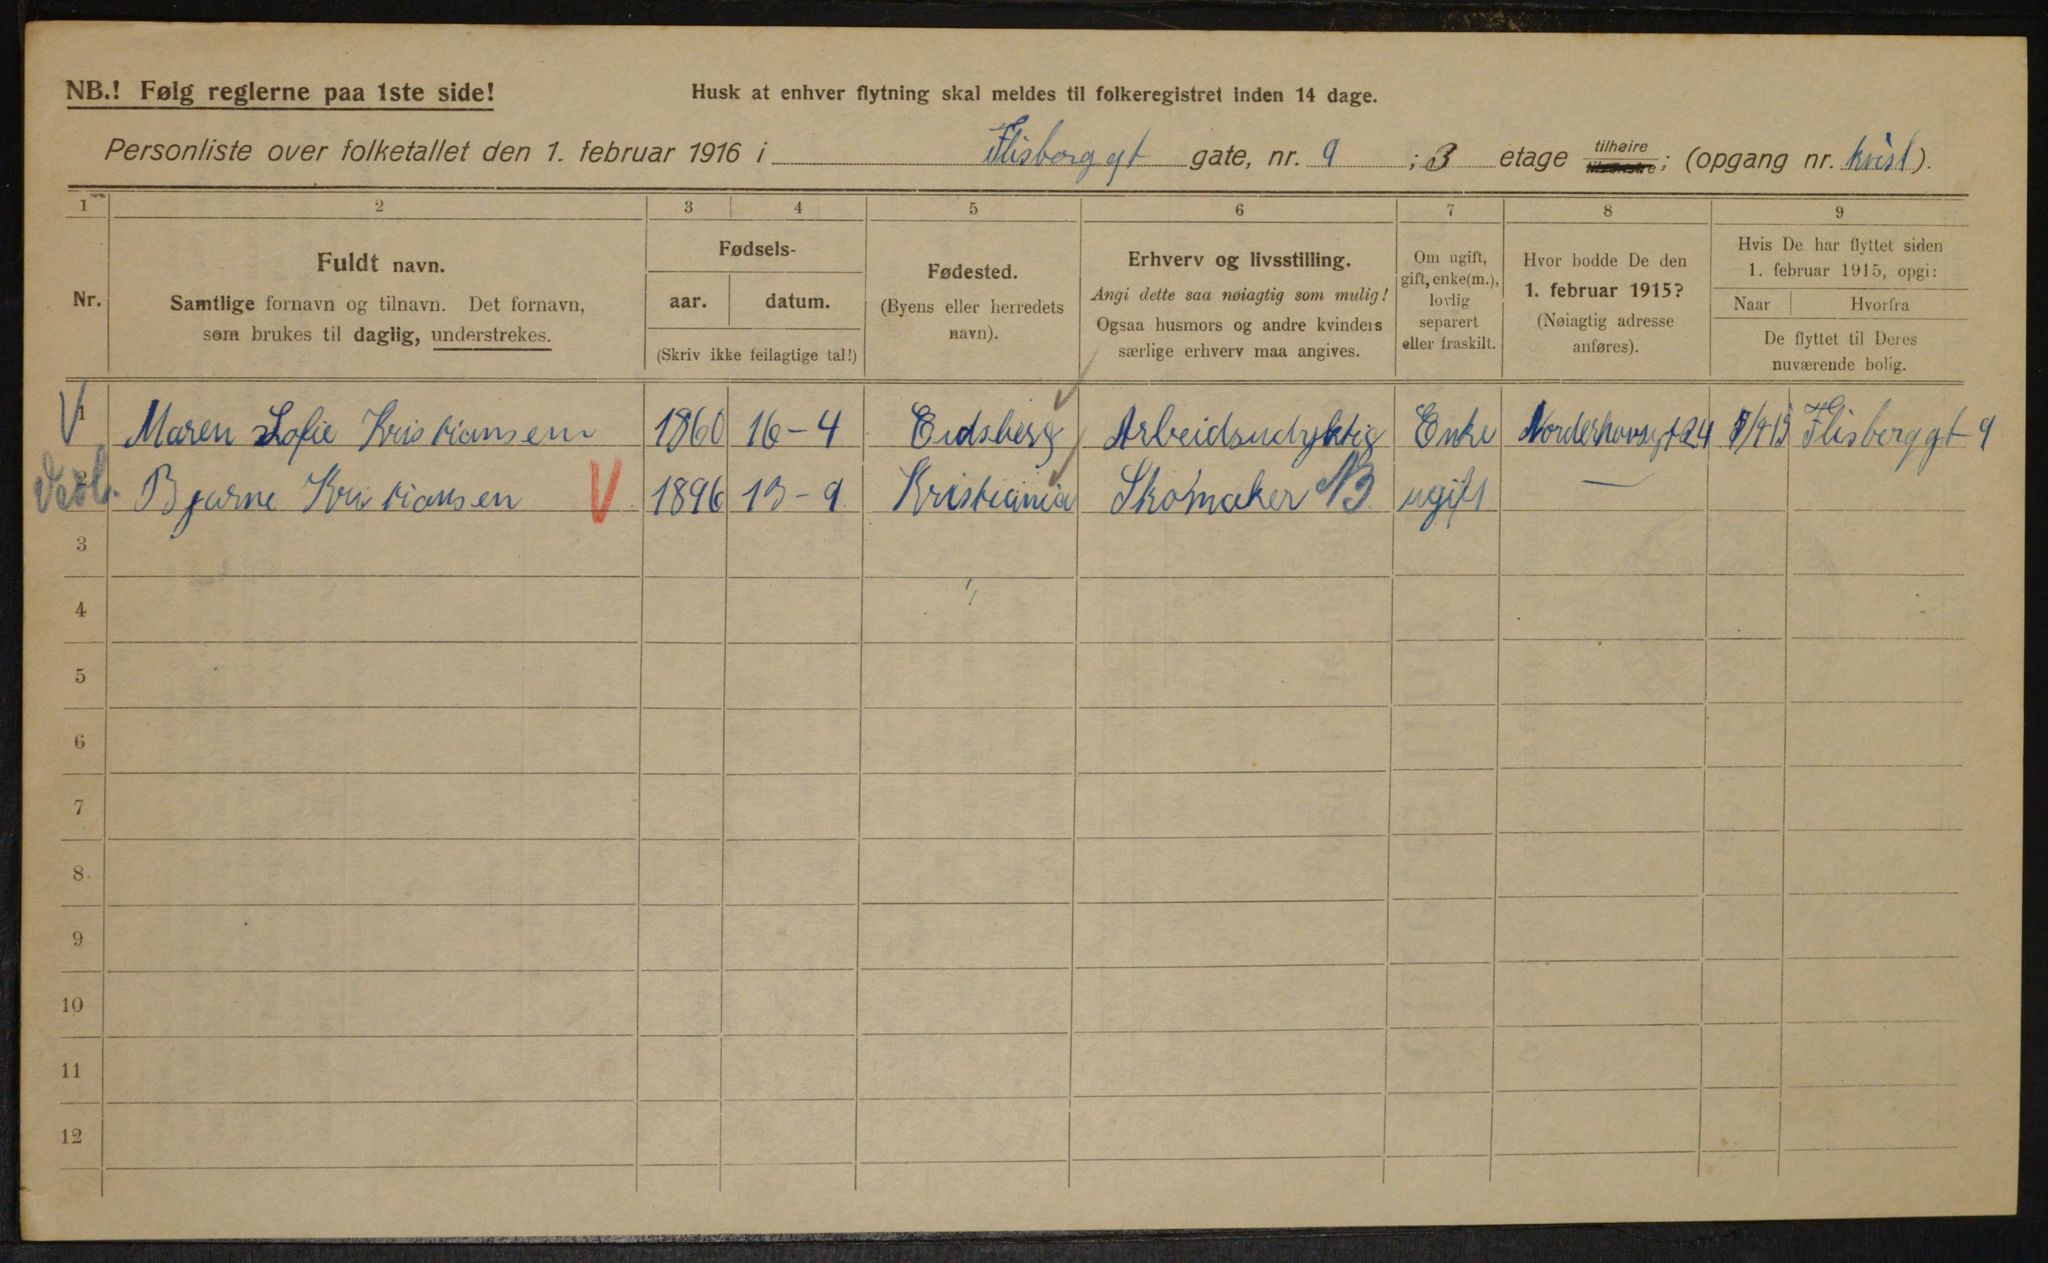 NB.! Følg reglerne paa 1ste side!
Husk at enhver flytning skal meldes til folkeregistret inden 14 dage.
Personliste over folketallet den 1. februar 1916 i Flisberg gt gate, nr. 9 ; 3 etage tilhøire tilvenstre; (opgang nr. kvist).
1 2 3 4 5 6 7 8 9
Nr.
Fuldt navn.
Samtlige fornavn og tilnavn. Det fornavn,
som brukes til daglig, understrekes.
Fødsels-
aar. datum.
(Skriv ikke feilagtige tal!)
Fødested.
(Byens eller herredets
navn).
Erhverv og livsstilling.
Angi dette saa nøiagtig som mulig!
Ogsaa husmors og andre kvinders
særlige erhverv maa angives.
Om ugift,
gift, enke(m.),
lovlig
separert
eller fraskilt.
Hvor bodde De den
1. februar 1915?
(Nøiagtig adresse
anføres).
Hvis De har flyttet siden
1. februar 1915, opgi:
Naar Hvorfra
De flyttet til Deres
nuværende bolig.
V 1 Maren Sofie Kristiansen 1860 16-4 Eidsberg Arbeidsudyktig Enke Norderhovsgt 24 Flisberg gt 9
2 Bjarne Kristiansen V 1896 13-9 Kristiania Skomaker ugift —
3
4
5
6
7
8
9
10
11
12